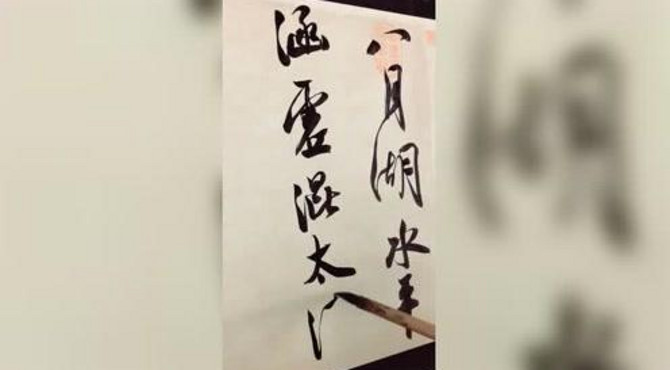 八月湖水平
涵虚混太